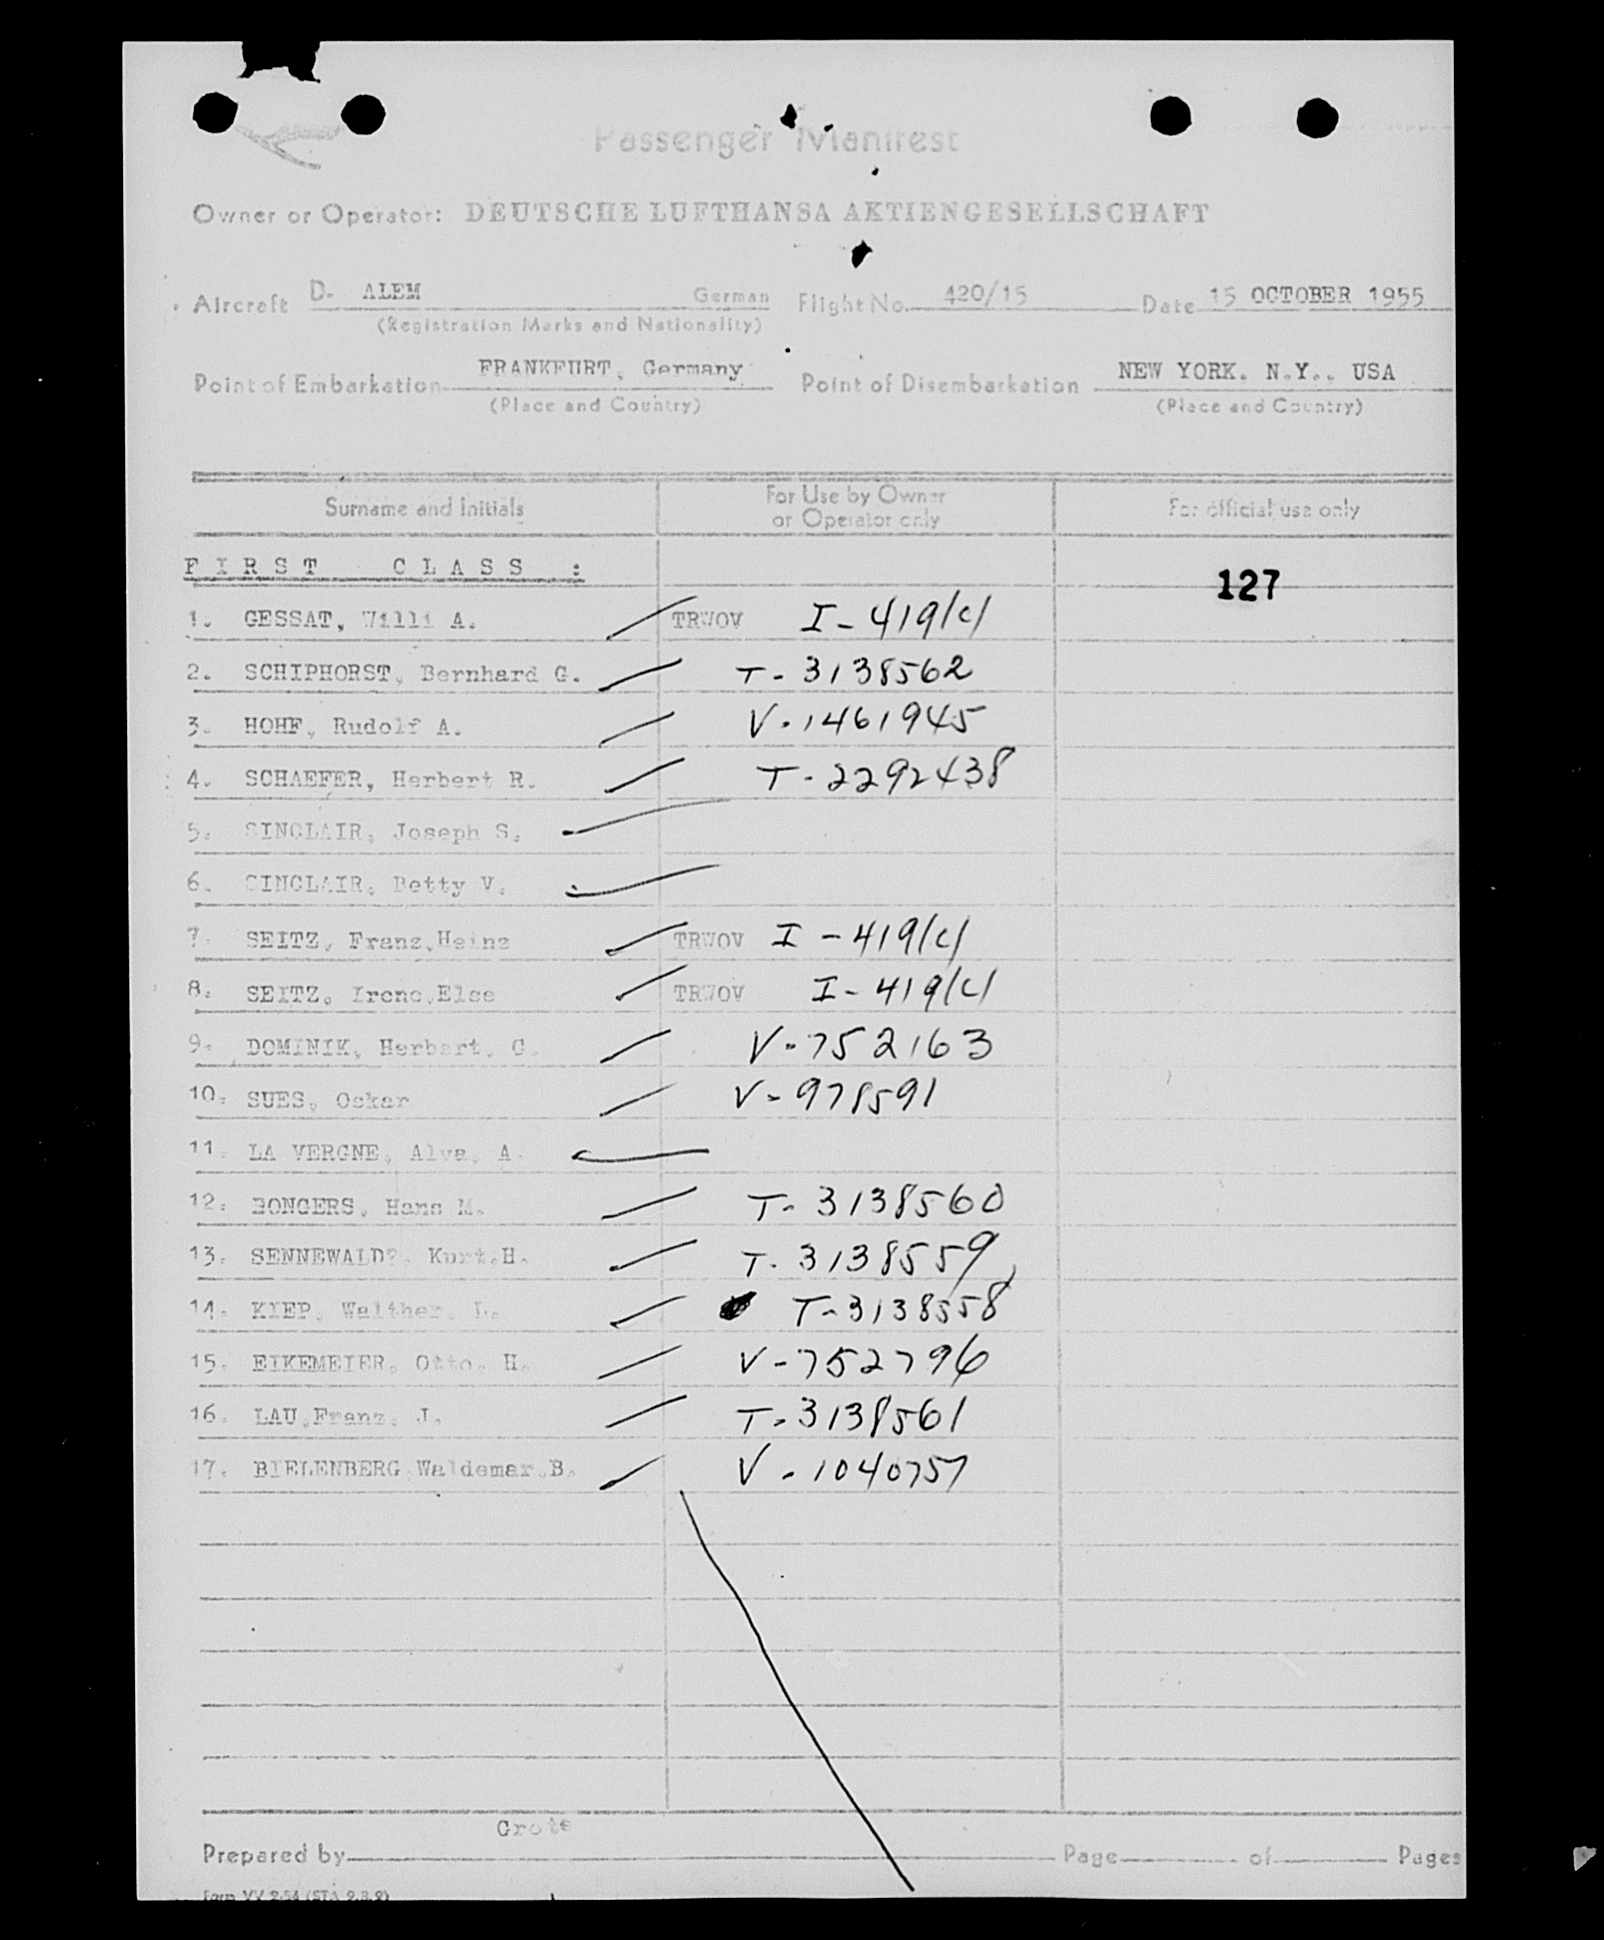 Passenger Manifest
Owner or Operator: DEUTSCHE LUFTHANSA AKTIENGESELLSCHAFT
Aircraft D- ALEM German Flight No. 420/15 Date 15 OCTOBER 1955
(Registration Marks and Nationality)
Point of Embarkation FRANKFURT, Germany Point of Disembarkation NEW YORK. N.Y., USA
(Place and Country) (Place and Country)
Surname and Initials For Use by Owner or Operator only For official use only
FIRST CLASS :
127
1. GESSAT, Willi A. TRWOV I-419/c/
2. SCHIPHORST, Bernhard G. T-3138562
3. HOHF, Rudolf A. V-1461945
4. SCHAEFER, Herbert R. T-2292438
5. SINCLAIR, Joseph S.
6. SINCLAIR, Betty V.
7. SEITZ, Franz,Heinz TRWOV I-419/c/
8. SEITZ, Irene,Else TRWOV I-419/c/
9. DOMINIK, Herbert, G. V-752163
10. SUES, Oskar V-978591
11. LA VERGNE, Alva, A.
12. BONGERS, Hans M. T-3138560
13. SENNEWALD, Kurt.H. T-3138559
14. KIEP, Walther, L. T-3138558
15. EIKEMEIER, Otto, H. V-752796
16. LAU,Franz, J. T-3138561
17. BIELENBERG,Waldemar,B. V-1040757
Grote
Prepared by Page of Pages
Form VV 2-54 (STA 2.8.2)